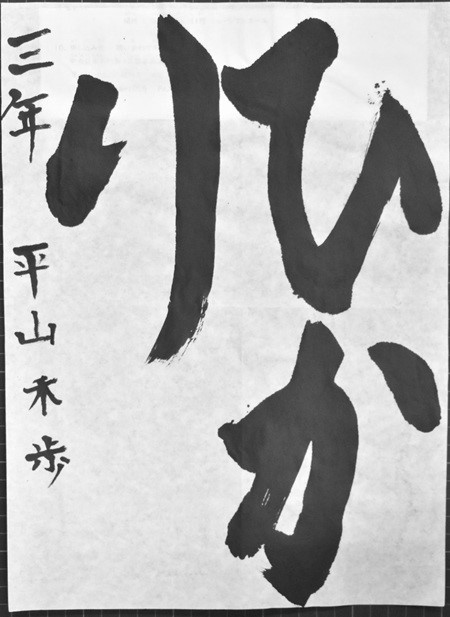 ひか
り
三年 平山未歩